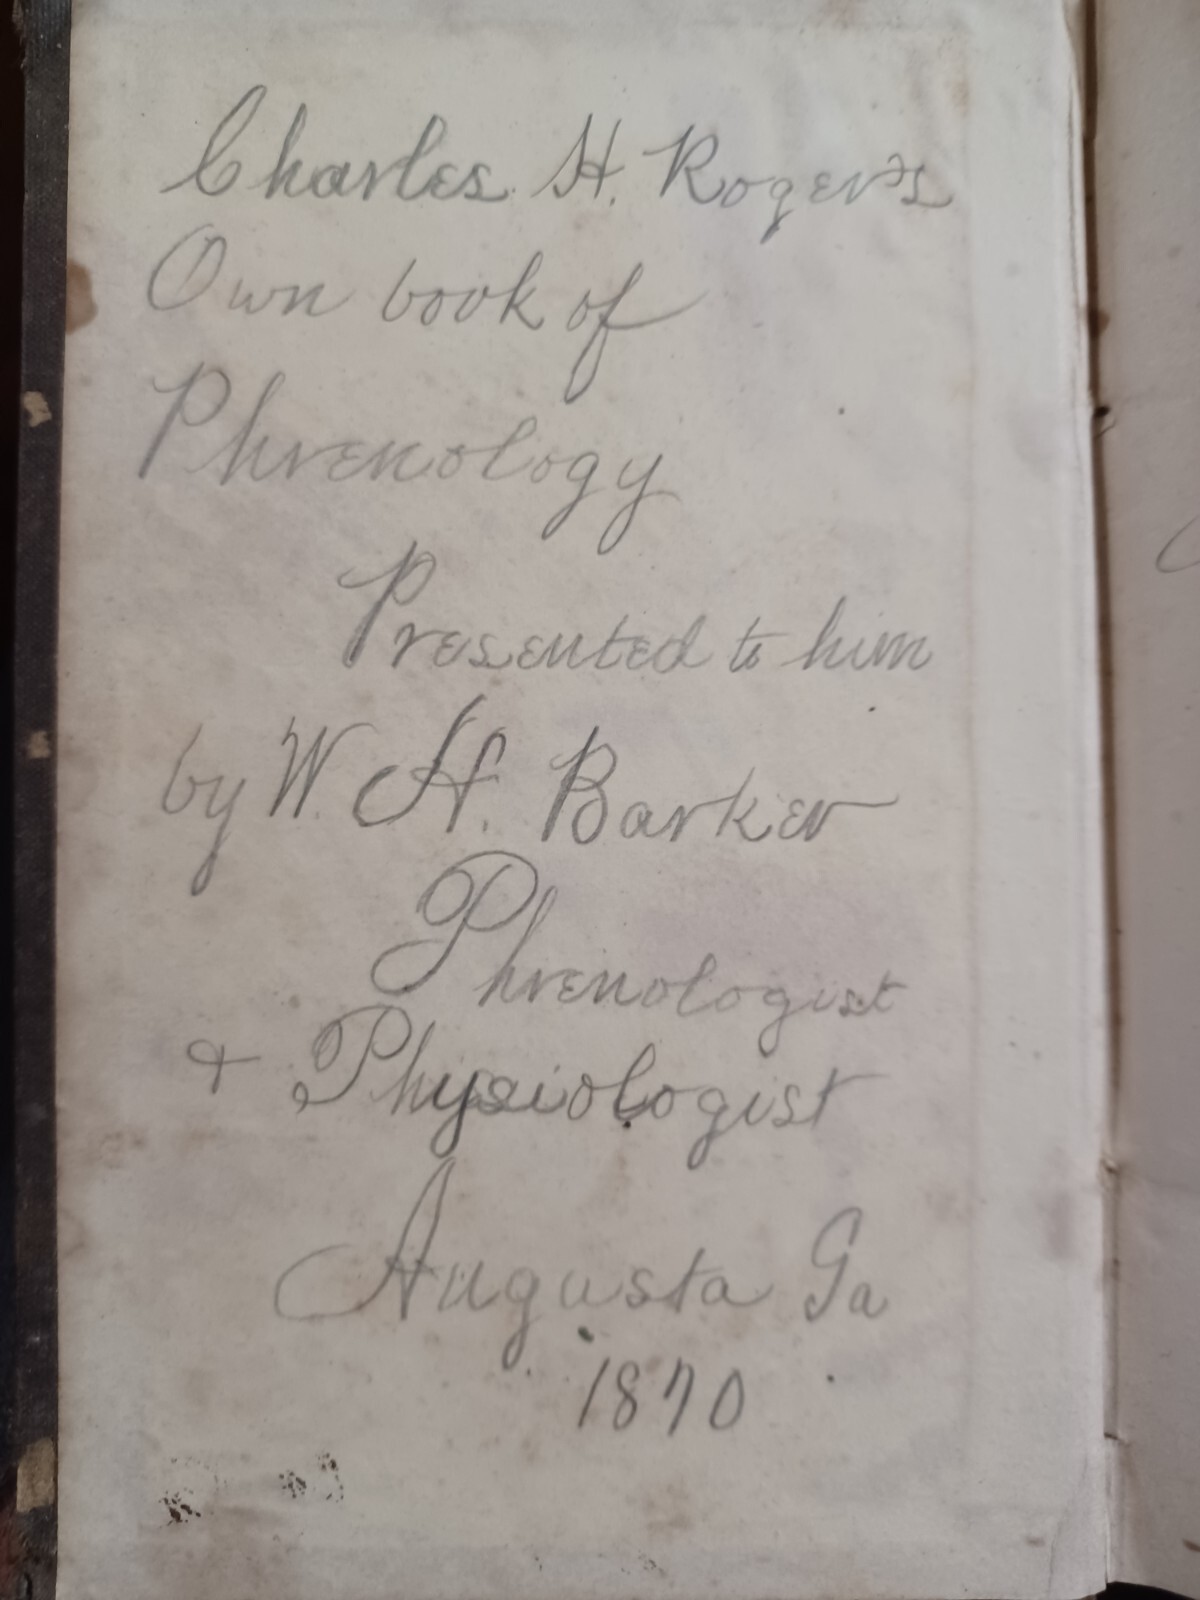 Charles H. Roger's
Own book of
Phrenology
Presented to him
by W. H. Barker
Phrenologist
& Physiologist
Augusta Ga
1870